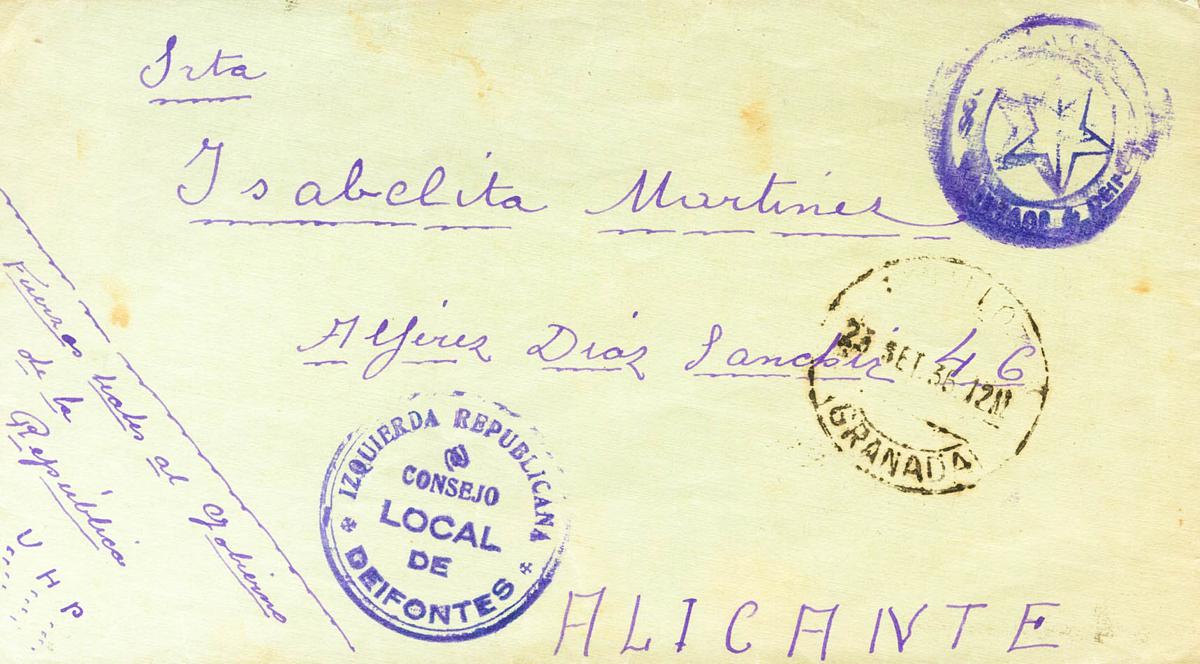 Srta
Isabelita Martinez
Alférez Díaz Sanchiz 46
ALICANTE
Fuerzas leales al Gobierno
de la
República
U H P
23 SET. 36 12M
GRANADA
IZQUIERDA REPUBLICANA
CONSEJO
LOCAL
DE
DEIFONTES